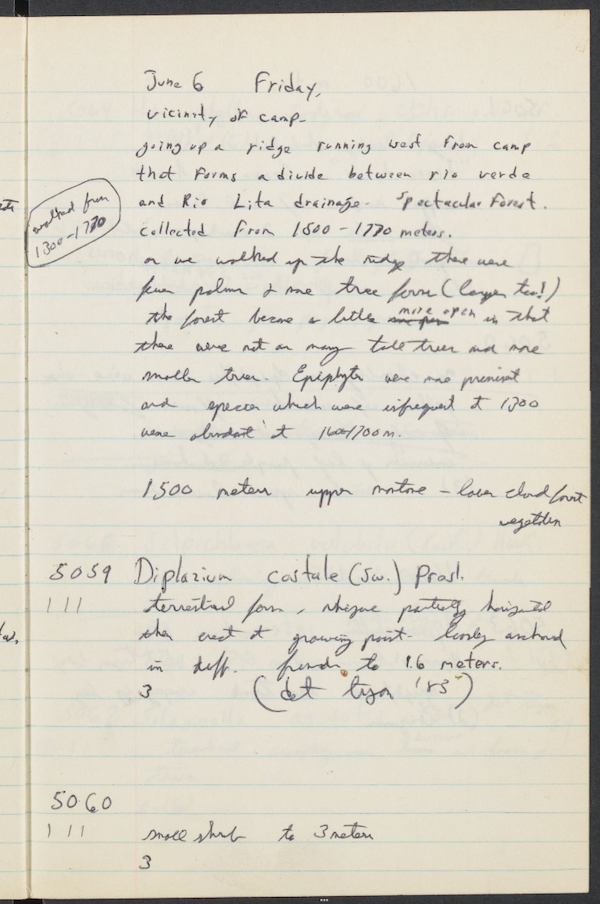 June 6 Friday,
vicinity of camp-
going up a ridge running west From camp
that Forms a divide between rio verde
and Rio Lita drainage. Spectacular Forest.
walked from
1300-1770
collected From 1500-1770 meters.
as we walked up the ridge there were
fewer palms & more tree ferns (larger too!)
the forest became a little more open in that
there were not as many tall trees and more
smaller trees. Epiphytes were more
and species which were infrequent at 1300
were abundant at 1600/1700 m.
1500 meters upper montane - lower cloud forest
vegetation
5059 Diplazium costale (Sw.) Presl.
111 terrestrial fern, partially horizontal
then erect at growing point - loosely anchored
in duff. fronds to 1.6 meters.
3 (det tryon '83)
5060
111 small shrub to 3 meters
3